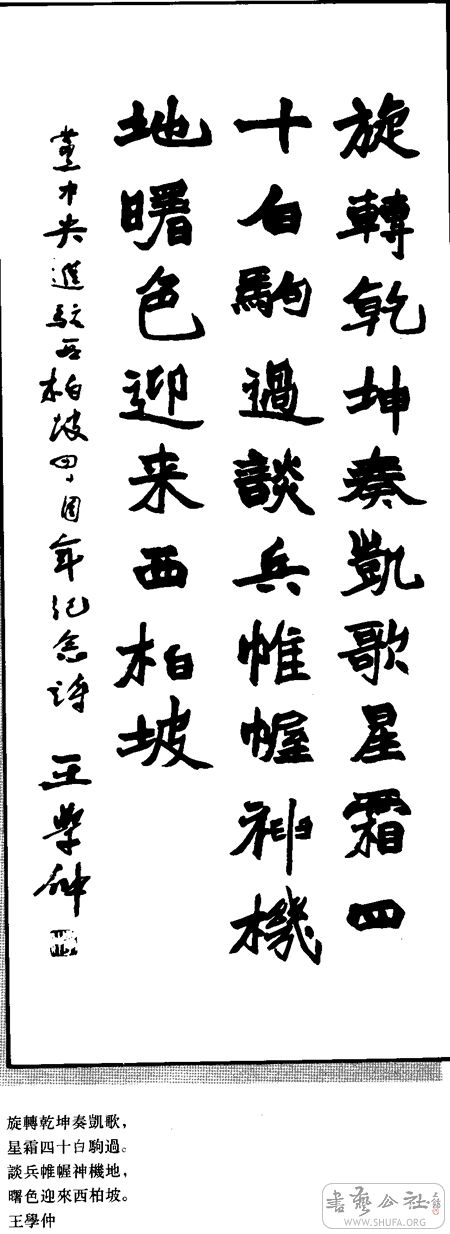 旋轉乾坤奏凱歌星霜四
十白駒過談兵帷幄神機
地曙色迎来西柏坡
黨中央進駐西柏坡四十周年紀念詩 王學仲
旋轉乾坤奏凱歌，
星霜四十白駒過。
談兵帷幄神機地，
曙色迎來西柏坡。
王學仲
書藝公社
WWW.SHUFA.ORG